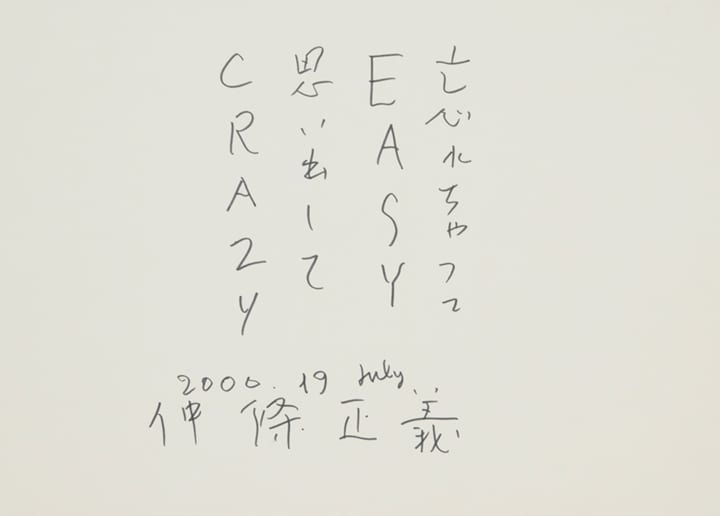 忘れちゃって
EASY
思い出して
CRAZY
2000. 19 July.
仲條正義